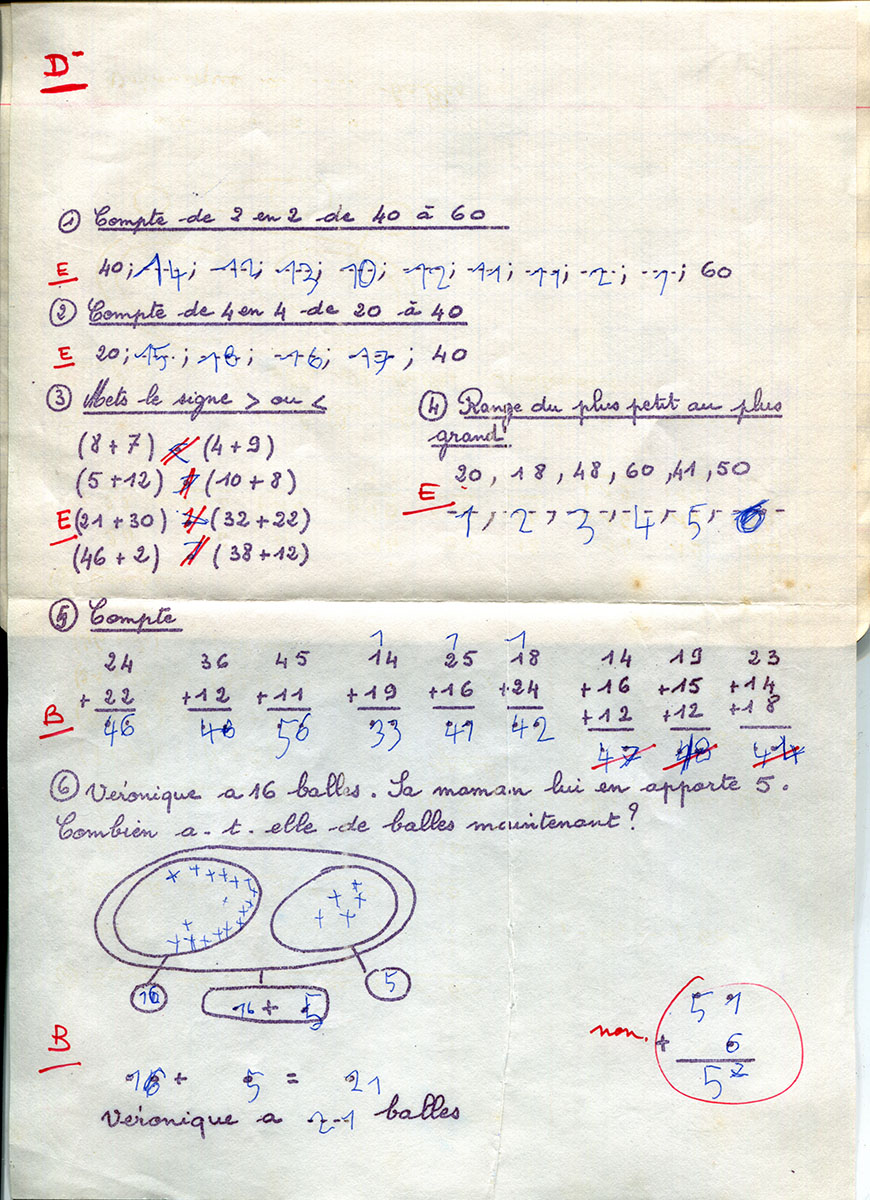 D-
① Compte de 2 en 2 de 40 à 60
E 40; 14; 12; 13; 10; 12; 11; 11; 2; 1; 60
② Compte de 4 en 4 de 20 à 40
E 20; 15; 18; 16; 17; 40
③ Mets le signe > ou <
(8+7) (4+9)
(5+12) (10+8)
E (21+30) (32+22)
(46+2) (38+12)
④ Range du plus petit au plus
grand
20, 18, 48, 60, 41, 50
E 1, 2, 3, 4, 5, 6
⑤ Compte
1 1 1
24 36 45 14 25 18 14 19 23
+22 +12 +11 +19 +16 +24 +16 +15 +14
+12 +12 +18
B 46 48 56 33 41 42 47 48 44
⑥ Véronique a 16 balles. Sa maman lui en apporte 5.
Combien a-t-elle de balles maintenant?
16 5
16 + 5
B
16 + 5 = 21
Véronique a 21 balles
non.
51
+ 6
52